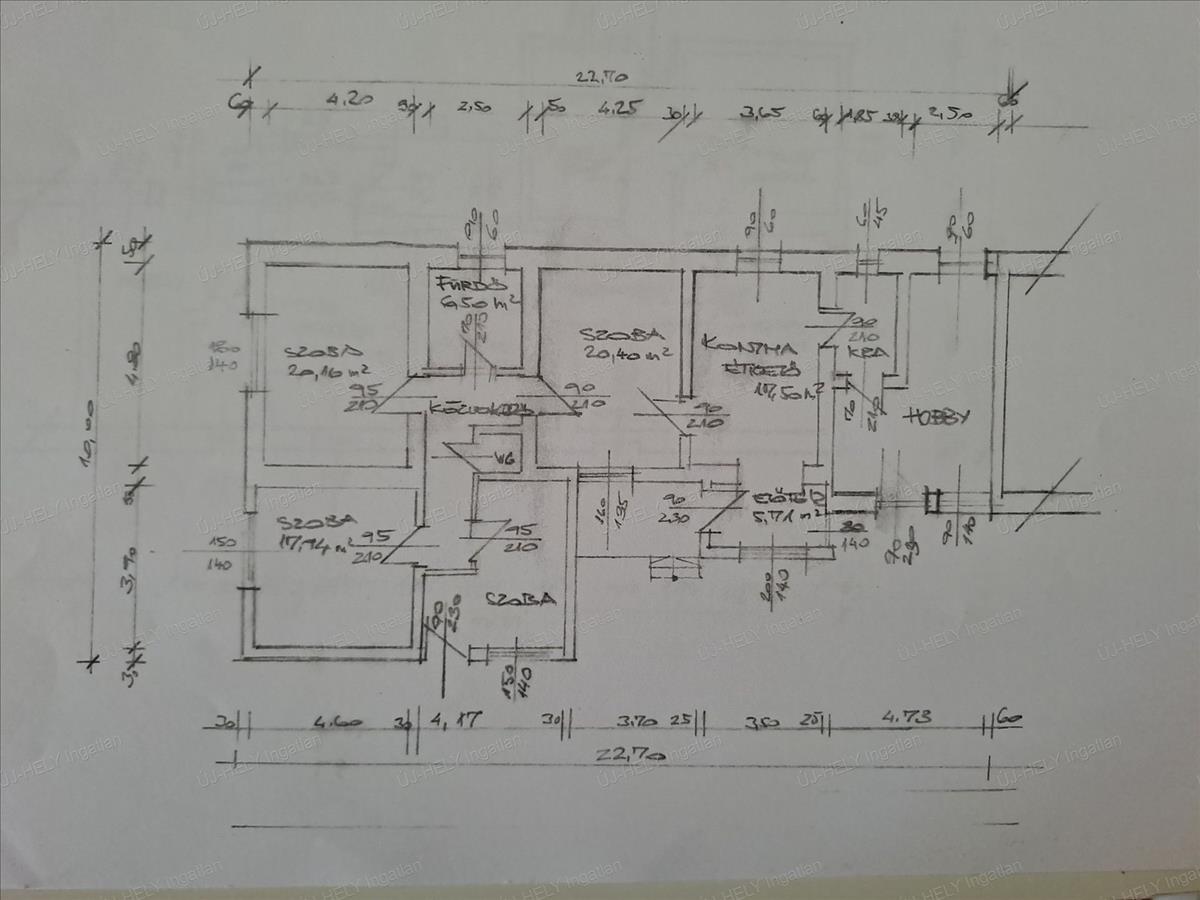 22,70
60 4,20 50 2,50 50 4,25 30 3,65 60 1,85 30 2,50 60
90
60
90
60
60
45
90
60
50
4,80
50
3,70
30
10,00
FÜRDŐ
6,50 m²
70
210
SZOBA
20,16 m²
180
140
95
210
KÖZLEKEDŐ
90
210
SZOBA
20,40 m²
90
210
KONYHA
ÉTKEZŐ
17,50 m²
90
210
KRA
70
210
HOBBY
WC
SZOBA
17,94 m²
150
140
95
210
95
210
SZOBA
90
230
150
140
160
135
90
230
ELŐTÉR
5,71 m²
80
140
200
140
90
140
30 4,60 30 4,17 30 3,70 25 3,50 25 4,73 60
22,70
ÚJ-HELY Ingatlan